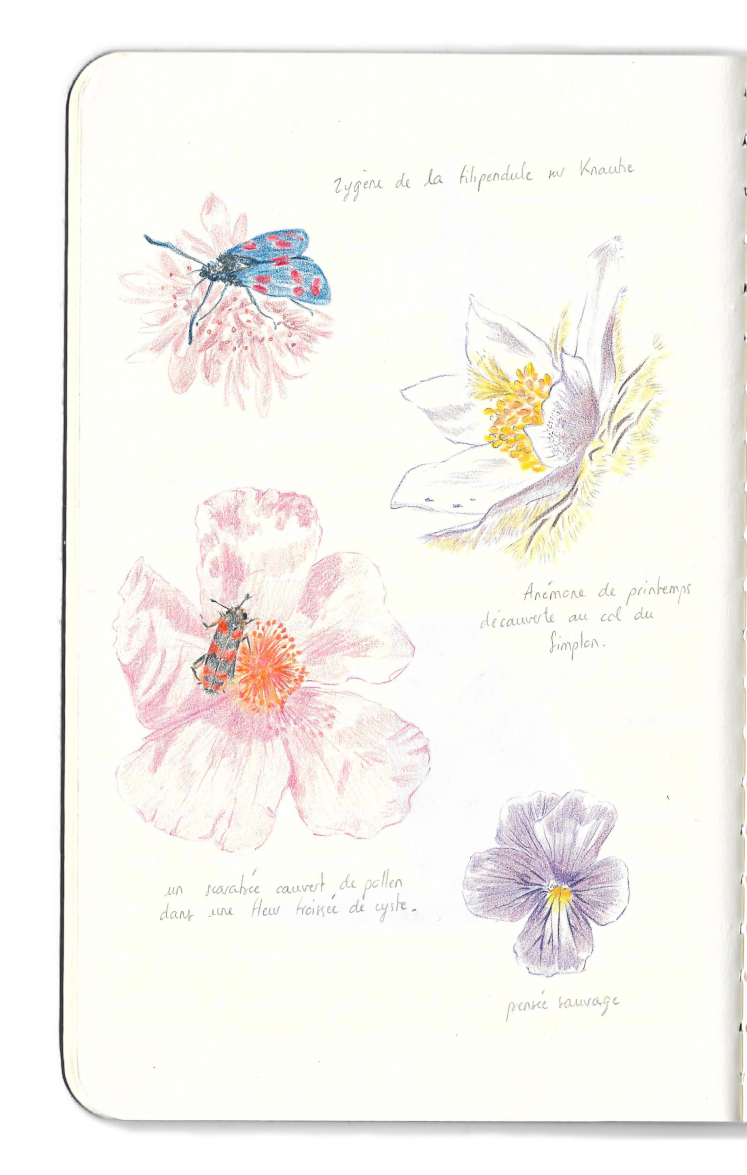 Zygène de la filipendule sur Knautie
Anémone de printemps
découverte au col du
Simplon.
un scarabée couvert de pollen
dans une fleur froissée de cyste.
pensée sauvage